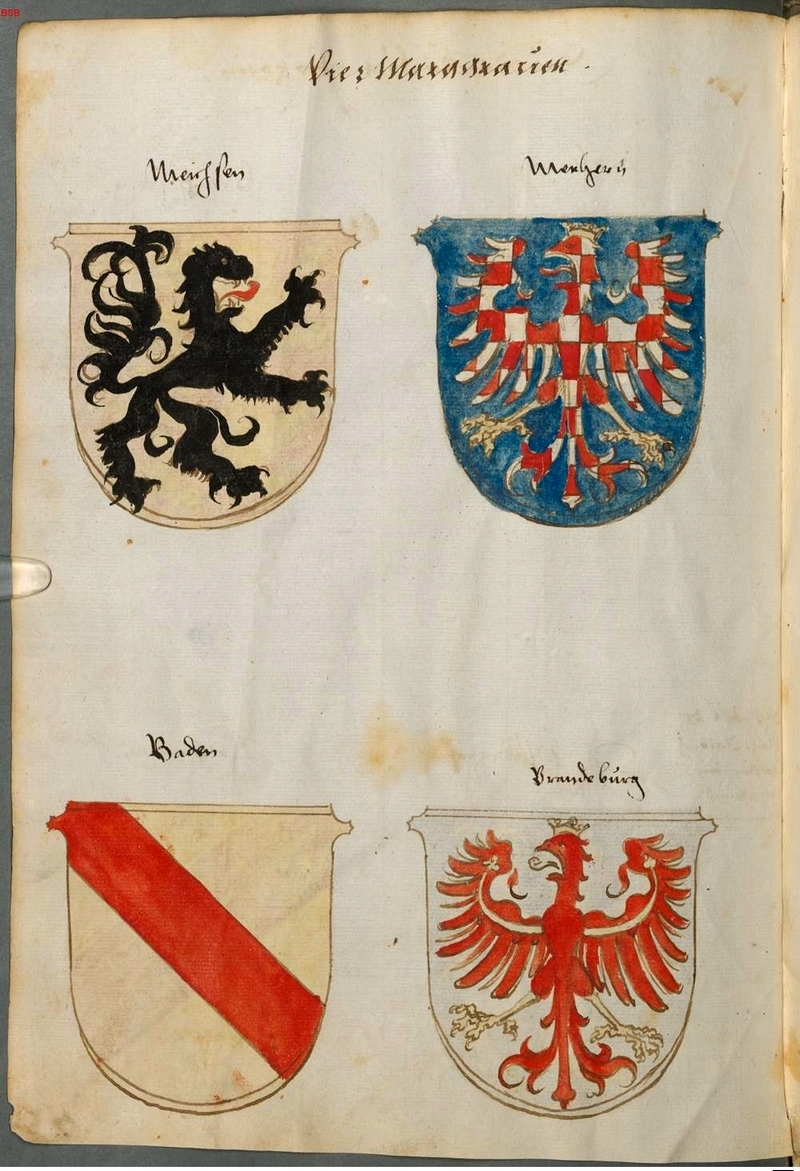 BSB
Vier Marggrauen.
Meichsen
Merhern
Baden
Brandeburg